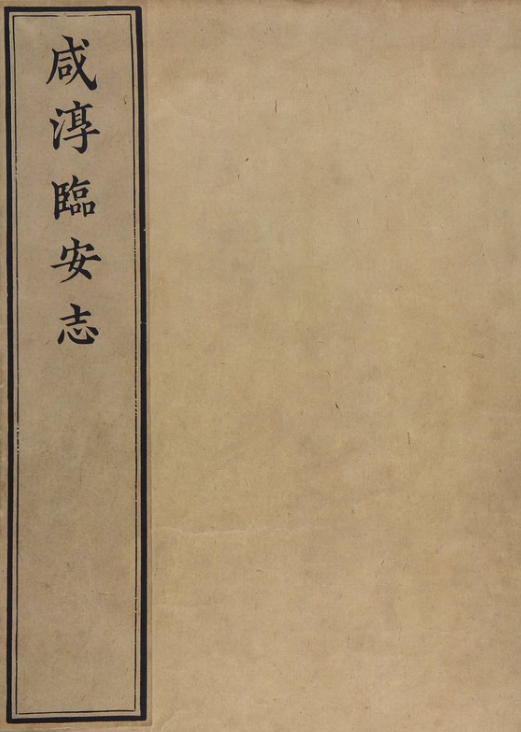 咸淳臨安志